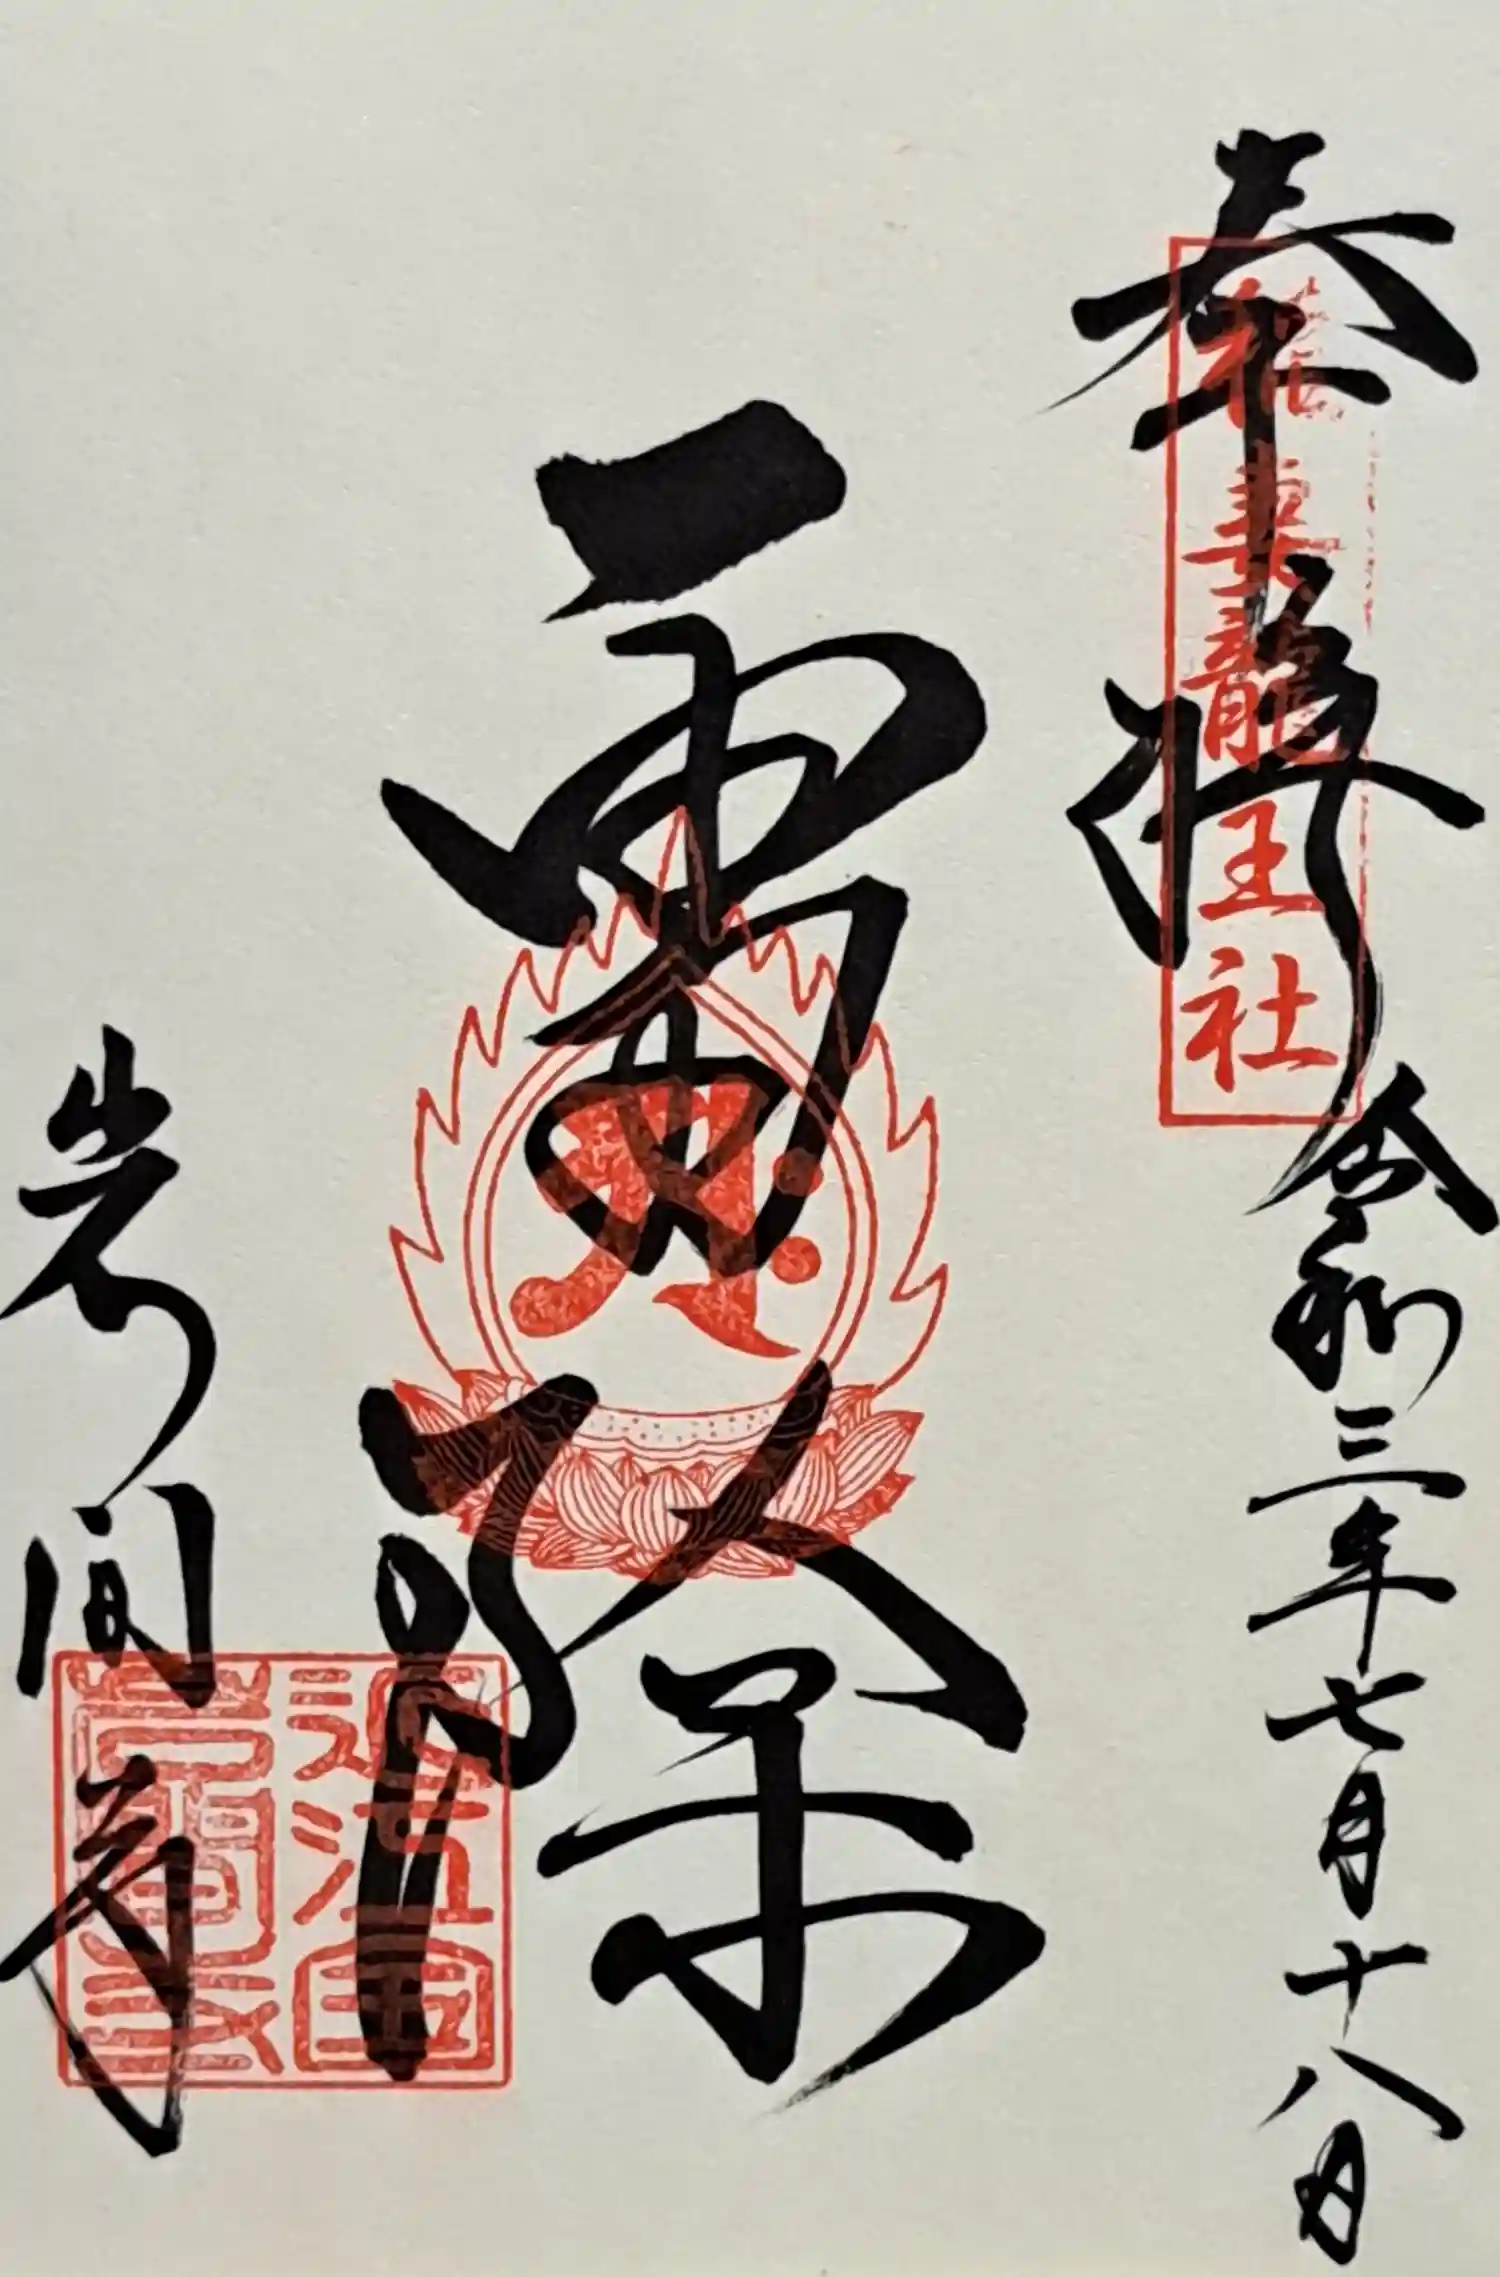 奉拝 令和三年七月十八日
稲妻龍王社
雷除
岩間寺
近江国
岩間寺